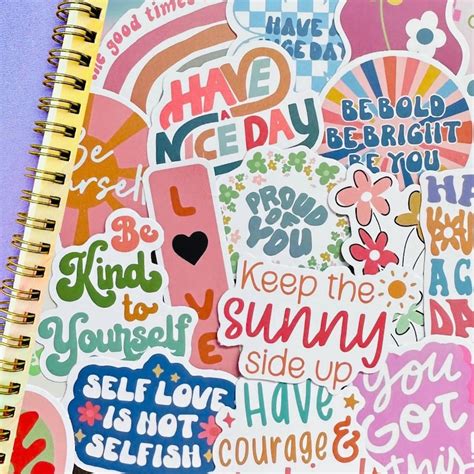 the good times
HAVE A
NICE DAY
HAVE
A
NICE DAY
BE BOLD
BE BRIGHT
BE YOU
Be
yourself
LOVE
PROUD
OF
YOU
Be
Kind
to
Yourself
Keep the
sunny
side up
HAVE
A
DAY
SELF LOVE
IS NOT
SELFISH
Have
courage &
You
Got
this